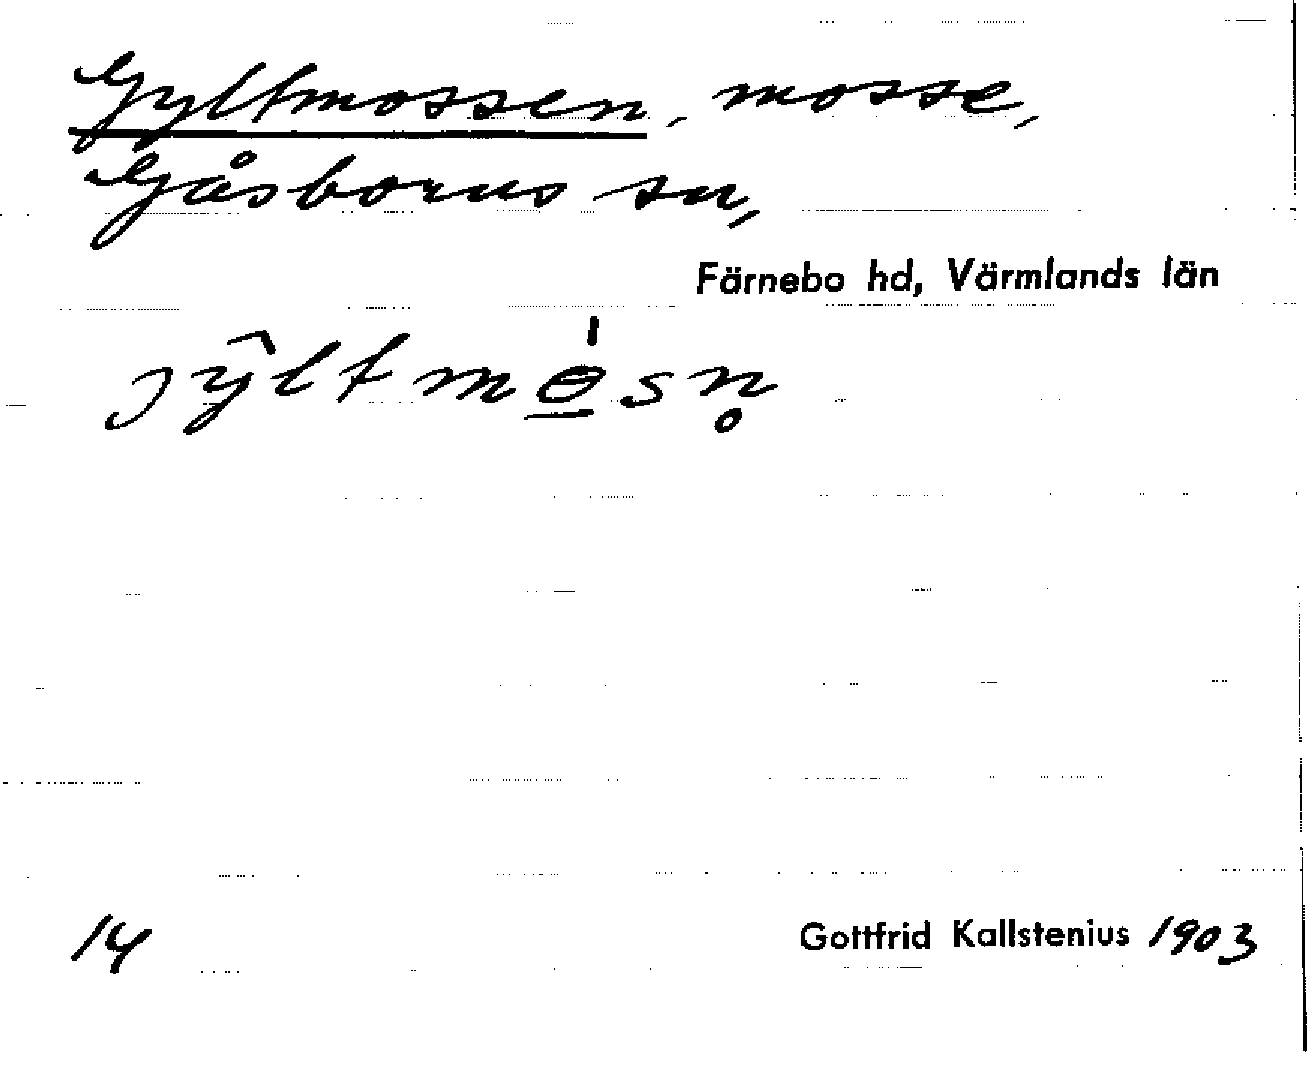 Gyltmossen, mosse,
Gåsborns sn,
Färnebo hd, Värmlands län
jŷltmɵ̲́sn̥
14
Gottfrid Kallstenius 1903